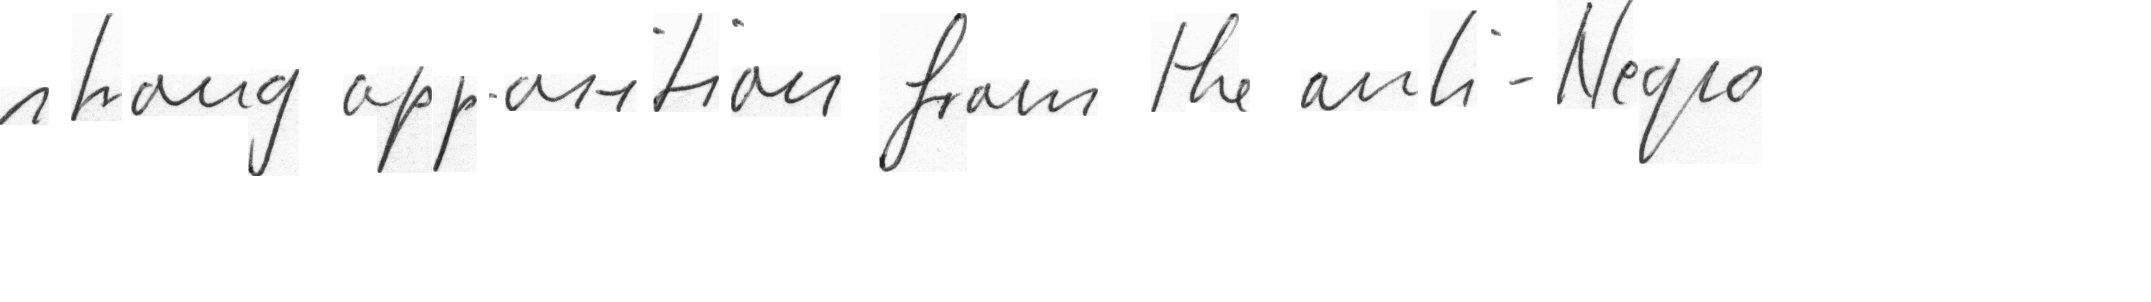 strong opposition from the anti-Negro